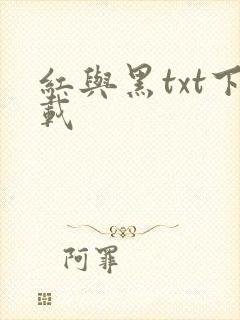 紅與黑txt下
載
阿罪